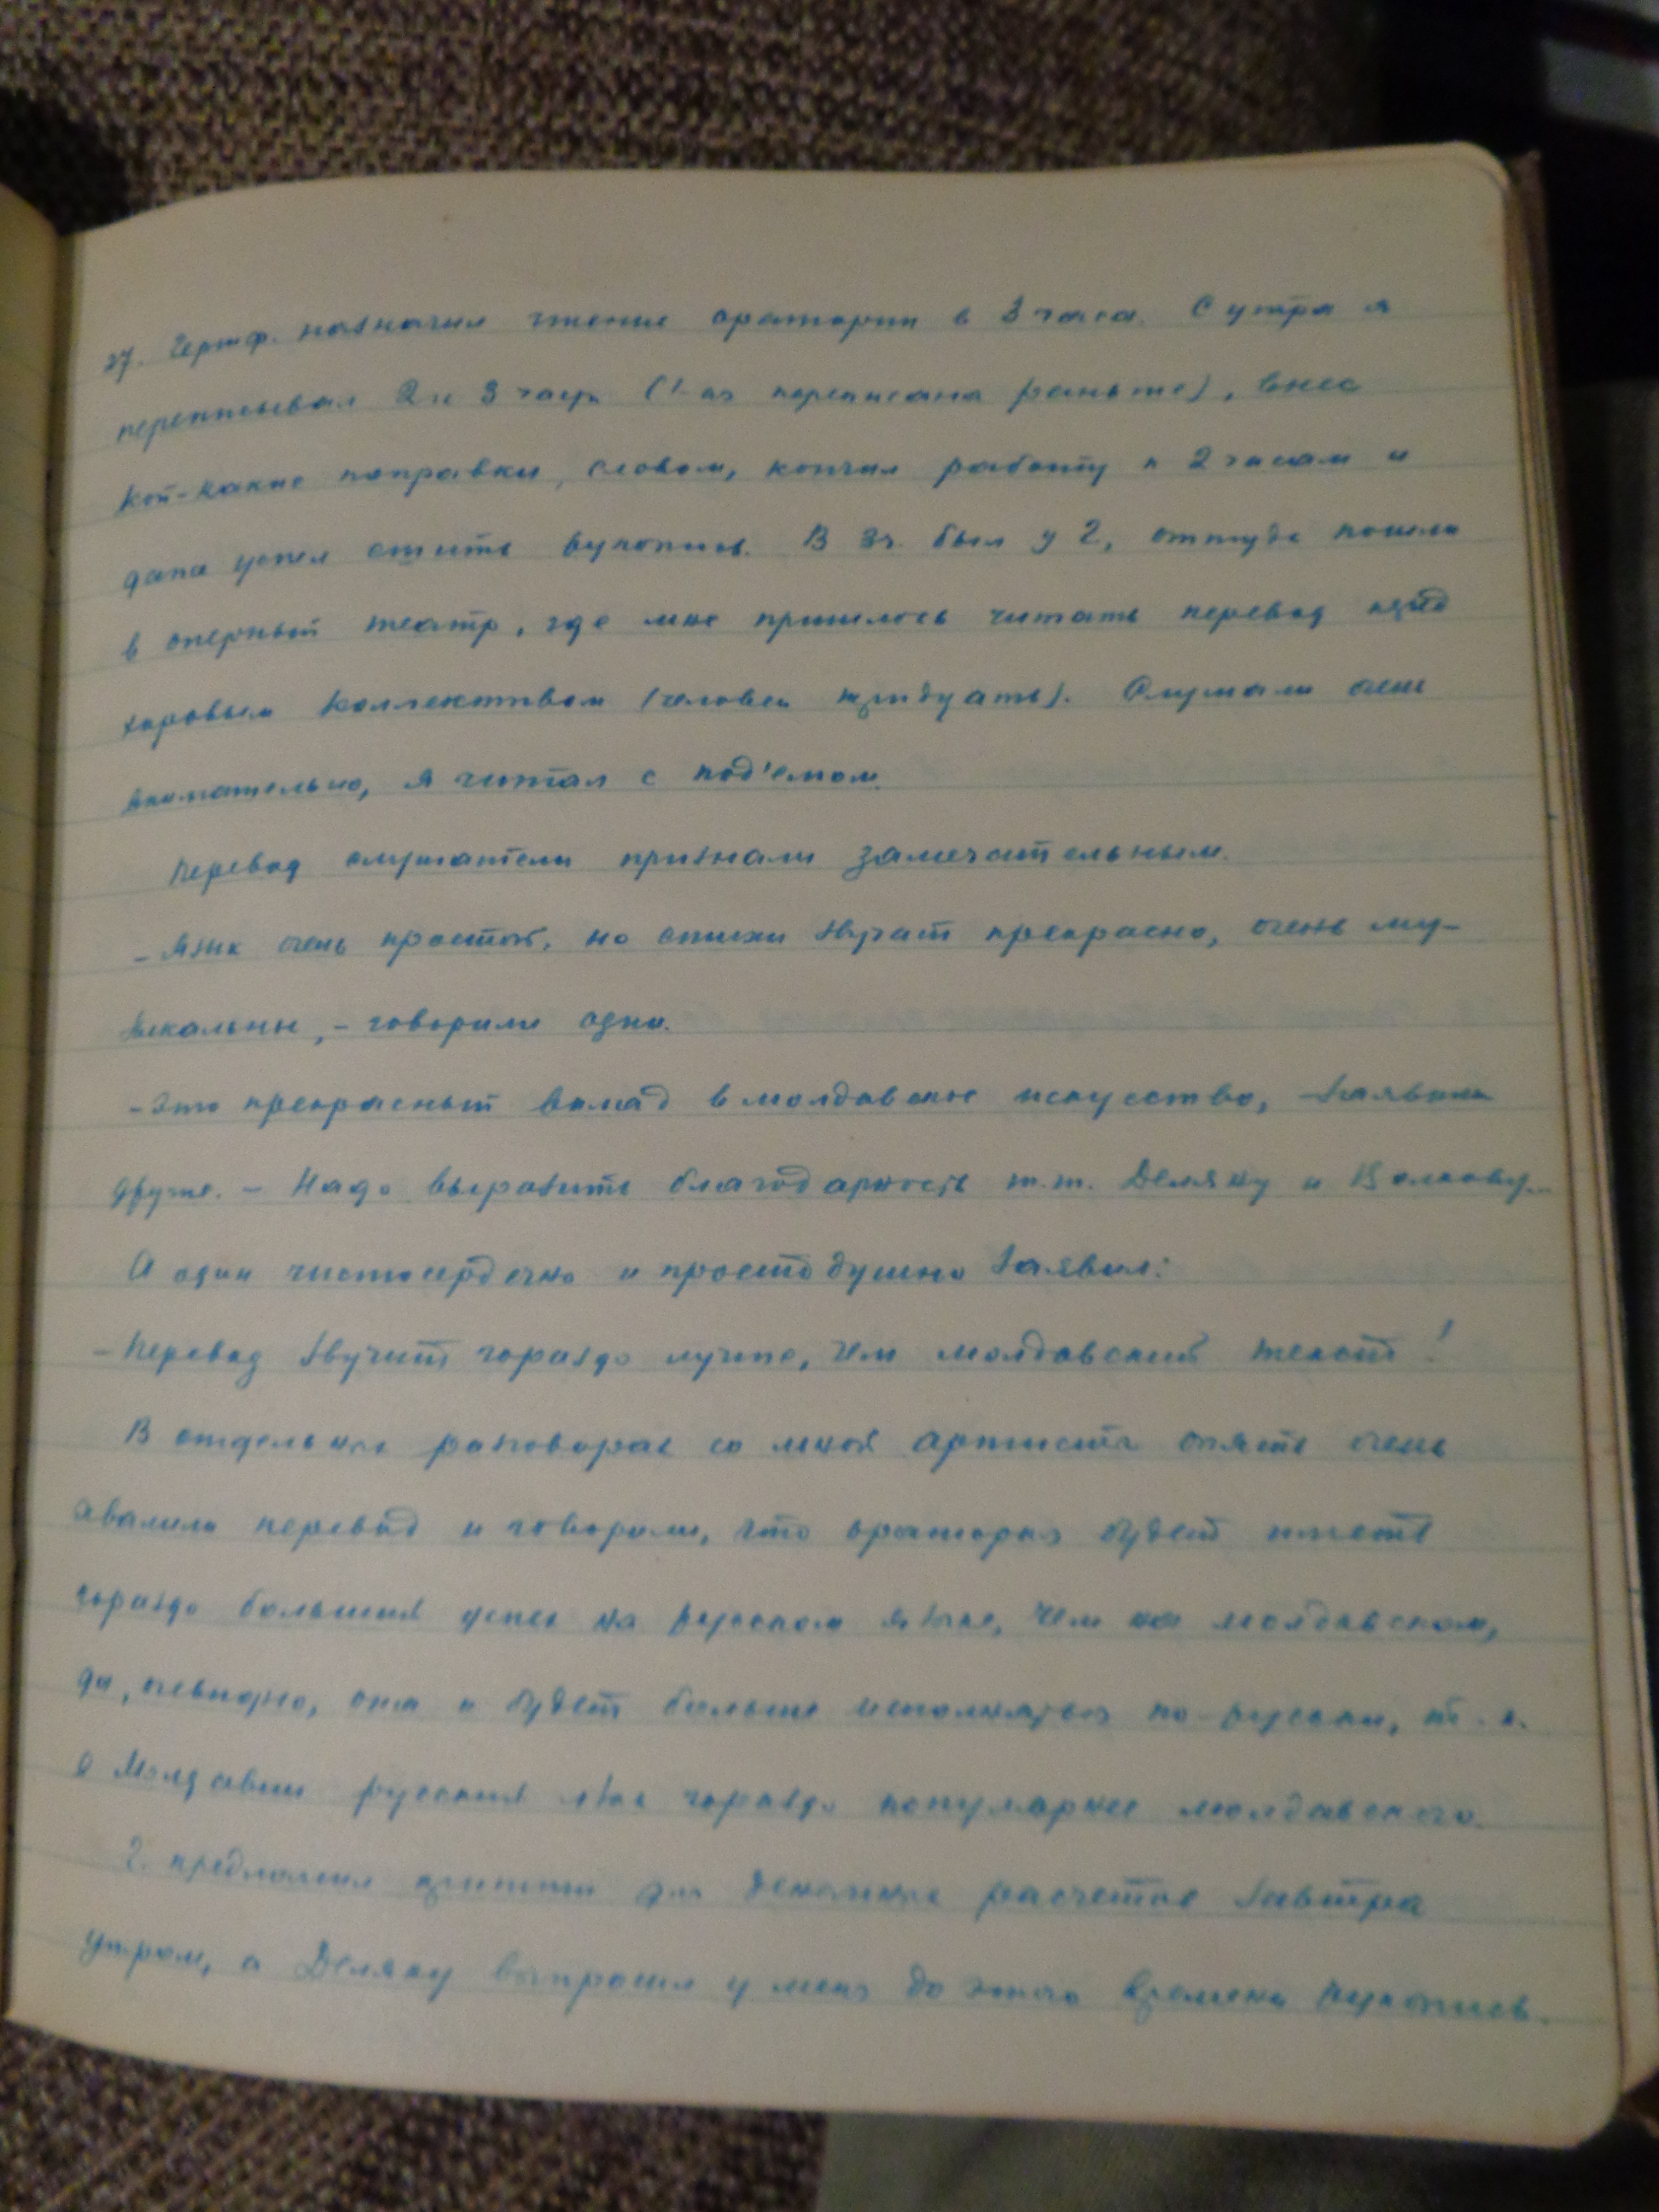 27. Гершф. назначил чтение оратории в 3 часа. С утра я
переписывал 2 и 3 части (1-ая переписана раньше), внес
кой-какие поправки, словом, кончил работу к 2 часам и
даже успел сшить рукопись. В 3 ч. был у Г., оттуда пошли
в оперный театр, где мне пришлось читать перевод перед
хоровым коллективом (человек тридцать). Слушали очень
внимательно, я читал с под'емом.
Перевод слушатели признали замечательным.
- Язык очень простой, но стихи звучат прекрасно, очень му-
зыкальны, - говорили одни.
- Это прекрасный вклад в молдавское искусство, - заявили
другие. - Надо выразить благодарность т.т. Деляну и Волкову...
А один чистосердечно и простодушно заявил:
- Перевод звучит гораздо лучше, чем молдавский текст!
В отдельных разговорах со мной артисты опять очень
хвалили перевод и говорили, что оратория будет иметь
гораздо больший успех на русском языке, чем на молдавском,
да, очевидно, она и будет больше исполняться по-русски, т.к.
в Молдавии русский язык гораздо популярнее молдавского.
Г. предложил притти для денежных расчетов завтра
утром, а Деляну выпросил у меня до этого времени рукопись.